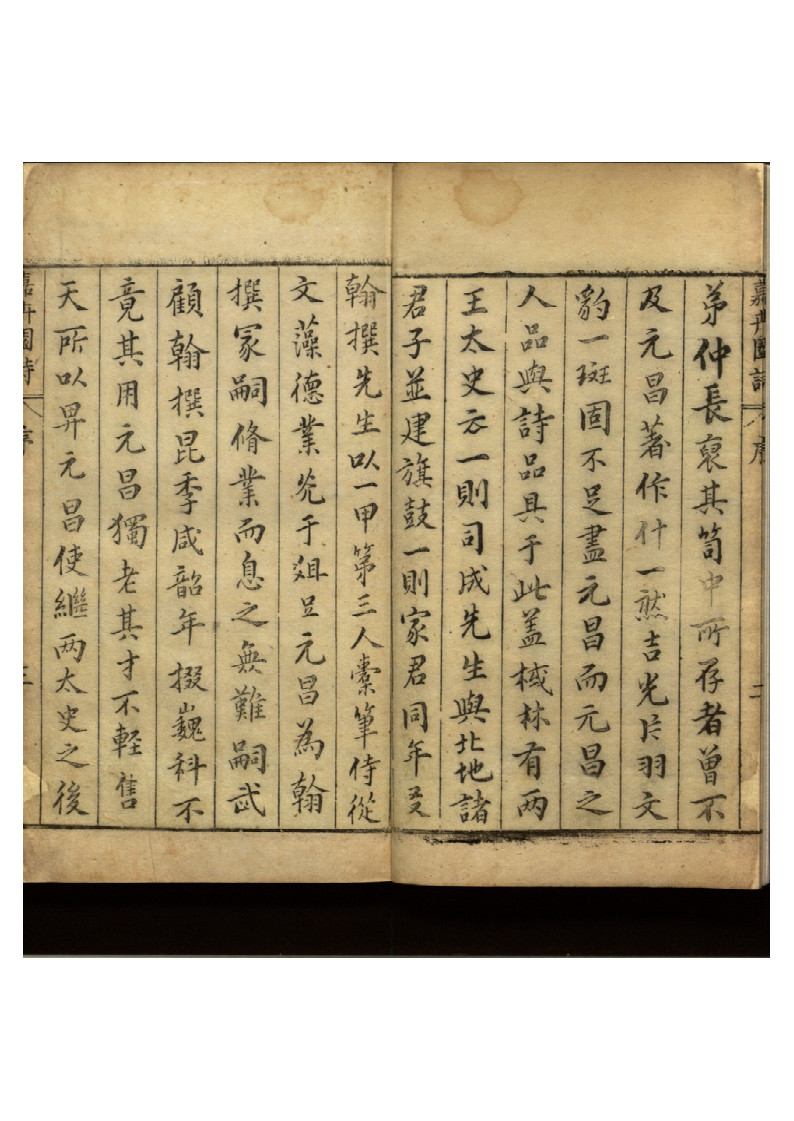 嘉卉園詩 序 二
弟仲長裒其笥中所存者曾不
及元昌著作什一然吉光片羽文
豹一斑固不足盡元昌而元昌之
人品與詩品具于此盖棫林有两
王太史云一則司成先生與北地諸
君子並建旗鼓一則家君同年友
翰撰先生以一甲第三人櫜筆侍從
文藻德業光于俎豆元昌為翰
撰冢嗣脩業而息之無難嗣武
顧翰撰昆季咸韶年掇巍科不
竟其用元昌獨老其才不輕售
天所以畀元昌使繼两太史之後
嘉卉園詩 序 三